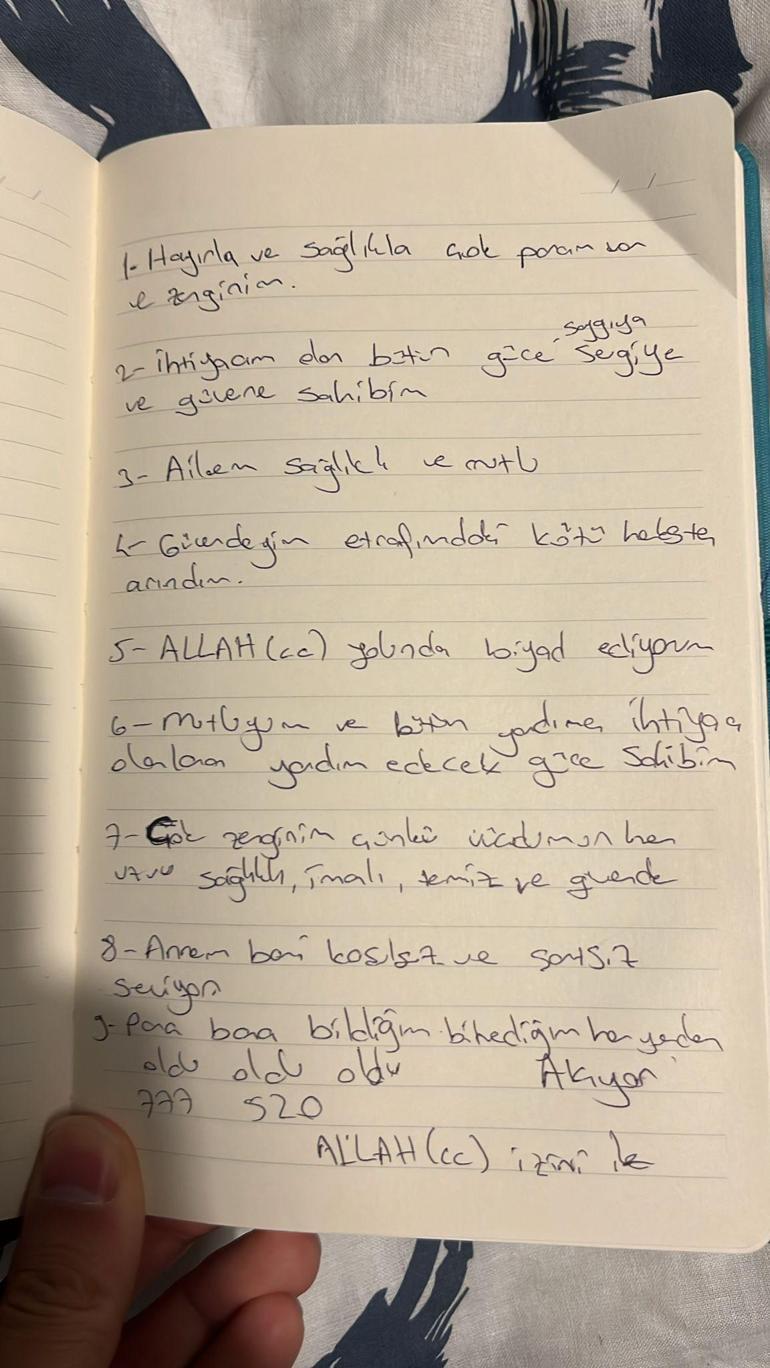 1- Hayırla ve sağlıkla çok param var
ve zenginim.
saygıya
2- ihtiyacım olan bütün güce, segiye
ve güvene sahibim
3- Ailem sağlıklı ve mutlu
4- Güvendeyim etrafımdaki kötü
arındım.
5- ALLAH (cc) yolunda ediyorum
6- mutluyum ve bütün yardıma ihtiyacı
olanlara yardım edecek güce Sahibim
7- Çok zenginim çünkü vücudumun her
uzvu sağlıklı, imanlı, temiz ve güvende
8- Annem beni koşulsuz ve sonsuz
seviyor
9- Para bana bildiğim bilmediğim her yerden
oldu oldu oldu Akıyor
777 520
ALLAH (cc) izini ile